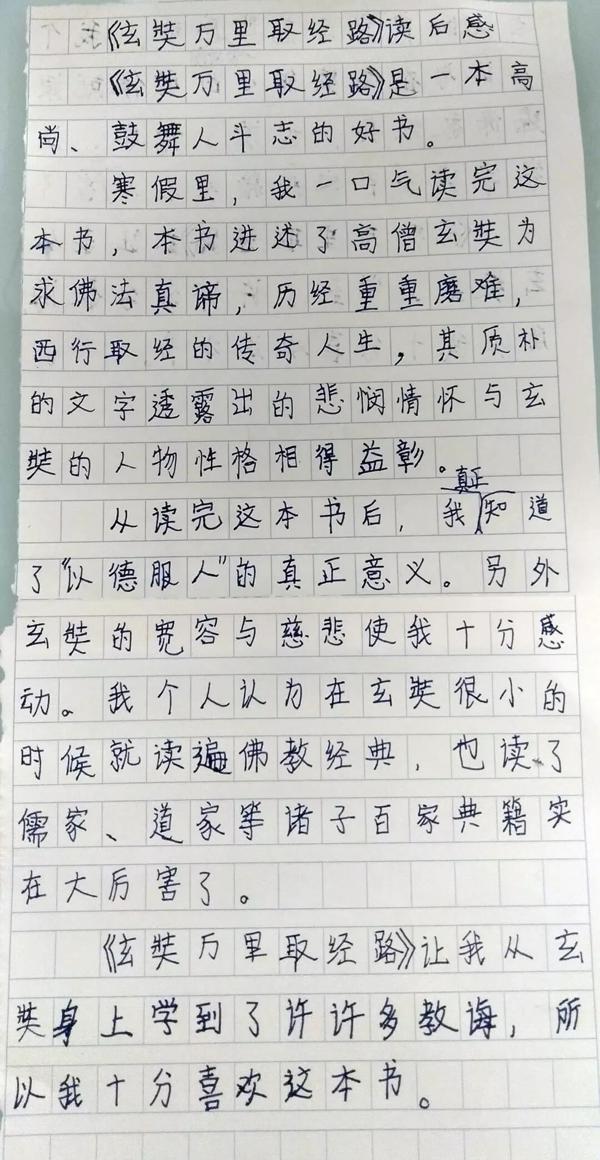 《玄奘万里取经路》读后感
《玄奘万里取经路》是一本高
尚、鼓舞人斗志的好书。
寒假里，我一口气读完这
本书，本书进述了高僧玄奘为
求佛法真谛，历经重重磨难，
西行取经的传奇人生，其质朴
的文字透露出的悲悯情怀与玄
奘的人物性格相得益彰。
从读完这本书后，我真正知道
了“以德服人”的真正意义。另外
玄奘的宽容与慈悲使我十分感
动。我个人认为在玄奘很小的
时候就读遍佛教经典，也读了
儒家、道家等诸子百家典籍实
在大厉害了。
《玄奘万里取经路》让我从玄
奘身上学到了许许多教诲，所
以我十分喜欢这本书。